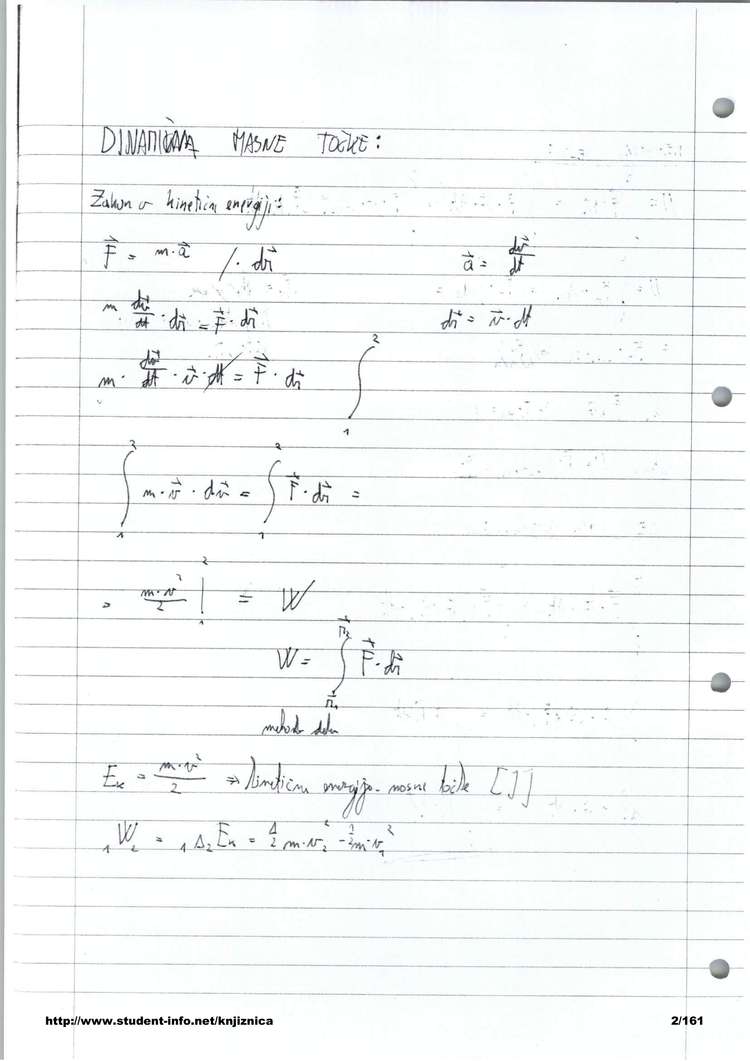 DINAMIKA MASNE TOČKE:
Zakon o kinetični energiji:
F⃗ = m·a⃗ /· dr⃗ a⃗ = dv⃗/dt
m · dv⃗/dt · dr⃗ = F⃗ · dr⃗ dr⃗ = v⃗ · dt
m · dv⃗/dt · v⃗ · dt = F⃗ · dr⃗ ∫₁²
∫₁² m · v⃗ · dv⃗ = ∫₁² F⃗ · dr⃗ =
= m·v²/2 |₁² = W
W = ∫ F⃗ · dr⃗ (r⃗₁, r⃗₂)
delo
Eₖ = m·v²/2 ⇒ kinetična energija masne točke [J]
₁W₂ = ₁Δ₂Eₖ = 1/2 m·v₂² - 1/2 m·v₁²
http://www.student-info.net/knjiznica 2/161